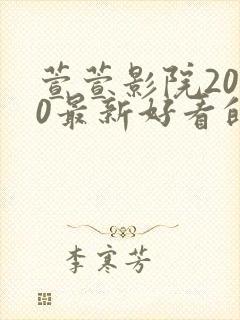 萱萱影院20
0最新好看的
李寒芳